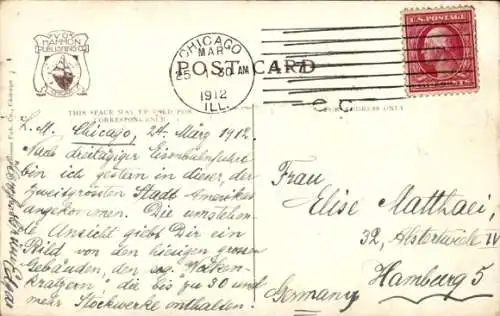 V.O.
HAMMON
PUBLISHING CO.
CHICAGO
MAR
25 1 30 AM
1912
ILL.
U.S. POSTAGE
POST CARD
THIS SPACE MAY BE USED FOR CORRESPONDENCE
FOR ADDRESS ONLY
L. M. Chicago, 24. März 1912.
Nach dreitägiger Eisenbahnfahrt
bin ich gestern in dieser, der
zweitgrössten Stadt Amerikas
angekommen. Die umstehen-
de Ansicht giebt Dir ein
Bild von den hiesigen grossen
Gebäuden, den sog. Wolken-
kratzern, die bis zu 30 und
mehr Stockwerke enthalten.
Frau
Elise Matthaei,
32, Alsterweide IV
Hamburg 5
Germany